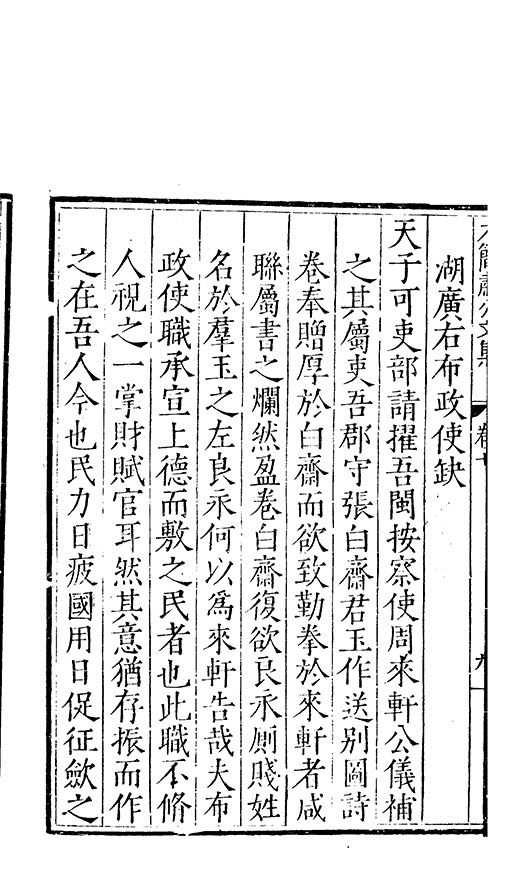 簡肅公文集
卷
九
湖廣右布政使缺
天子可吏部請擢吾閩按察使周來軒公儀補
之其屬吏吾郡守張白齋君玉作送别圖詩
卷奉贈厚於白齋而欲致勤拳於來軒者咸
聯屬書之爛然盈卷白齋復欲良永厠賤姓
名於羣玉之左良永何以爲來軒告哉夫布
政使職承宣上德而敷之民者也此職不脩
人視之一掌財賦官耳然其意猶存振而作
之在吾人今也民力日疲國用日促征歛之